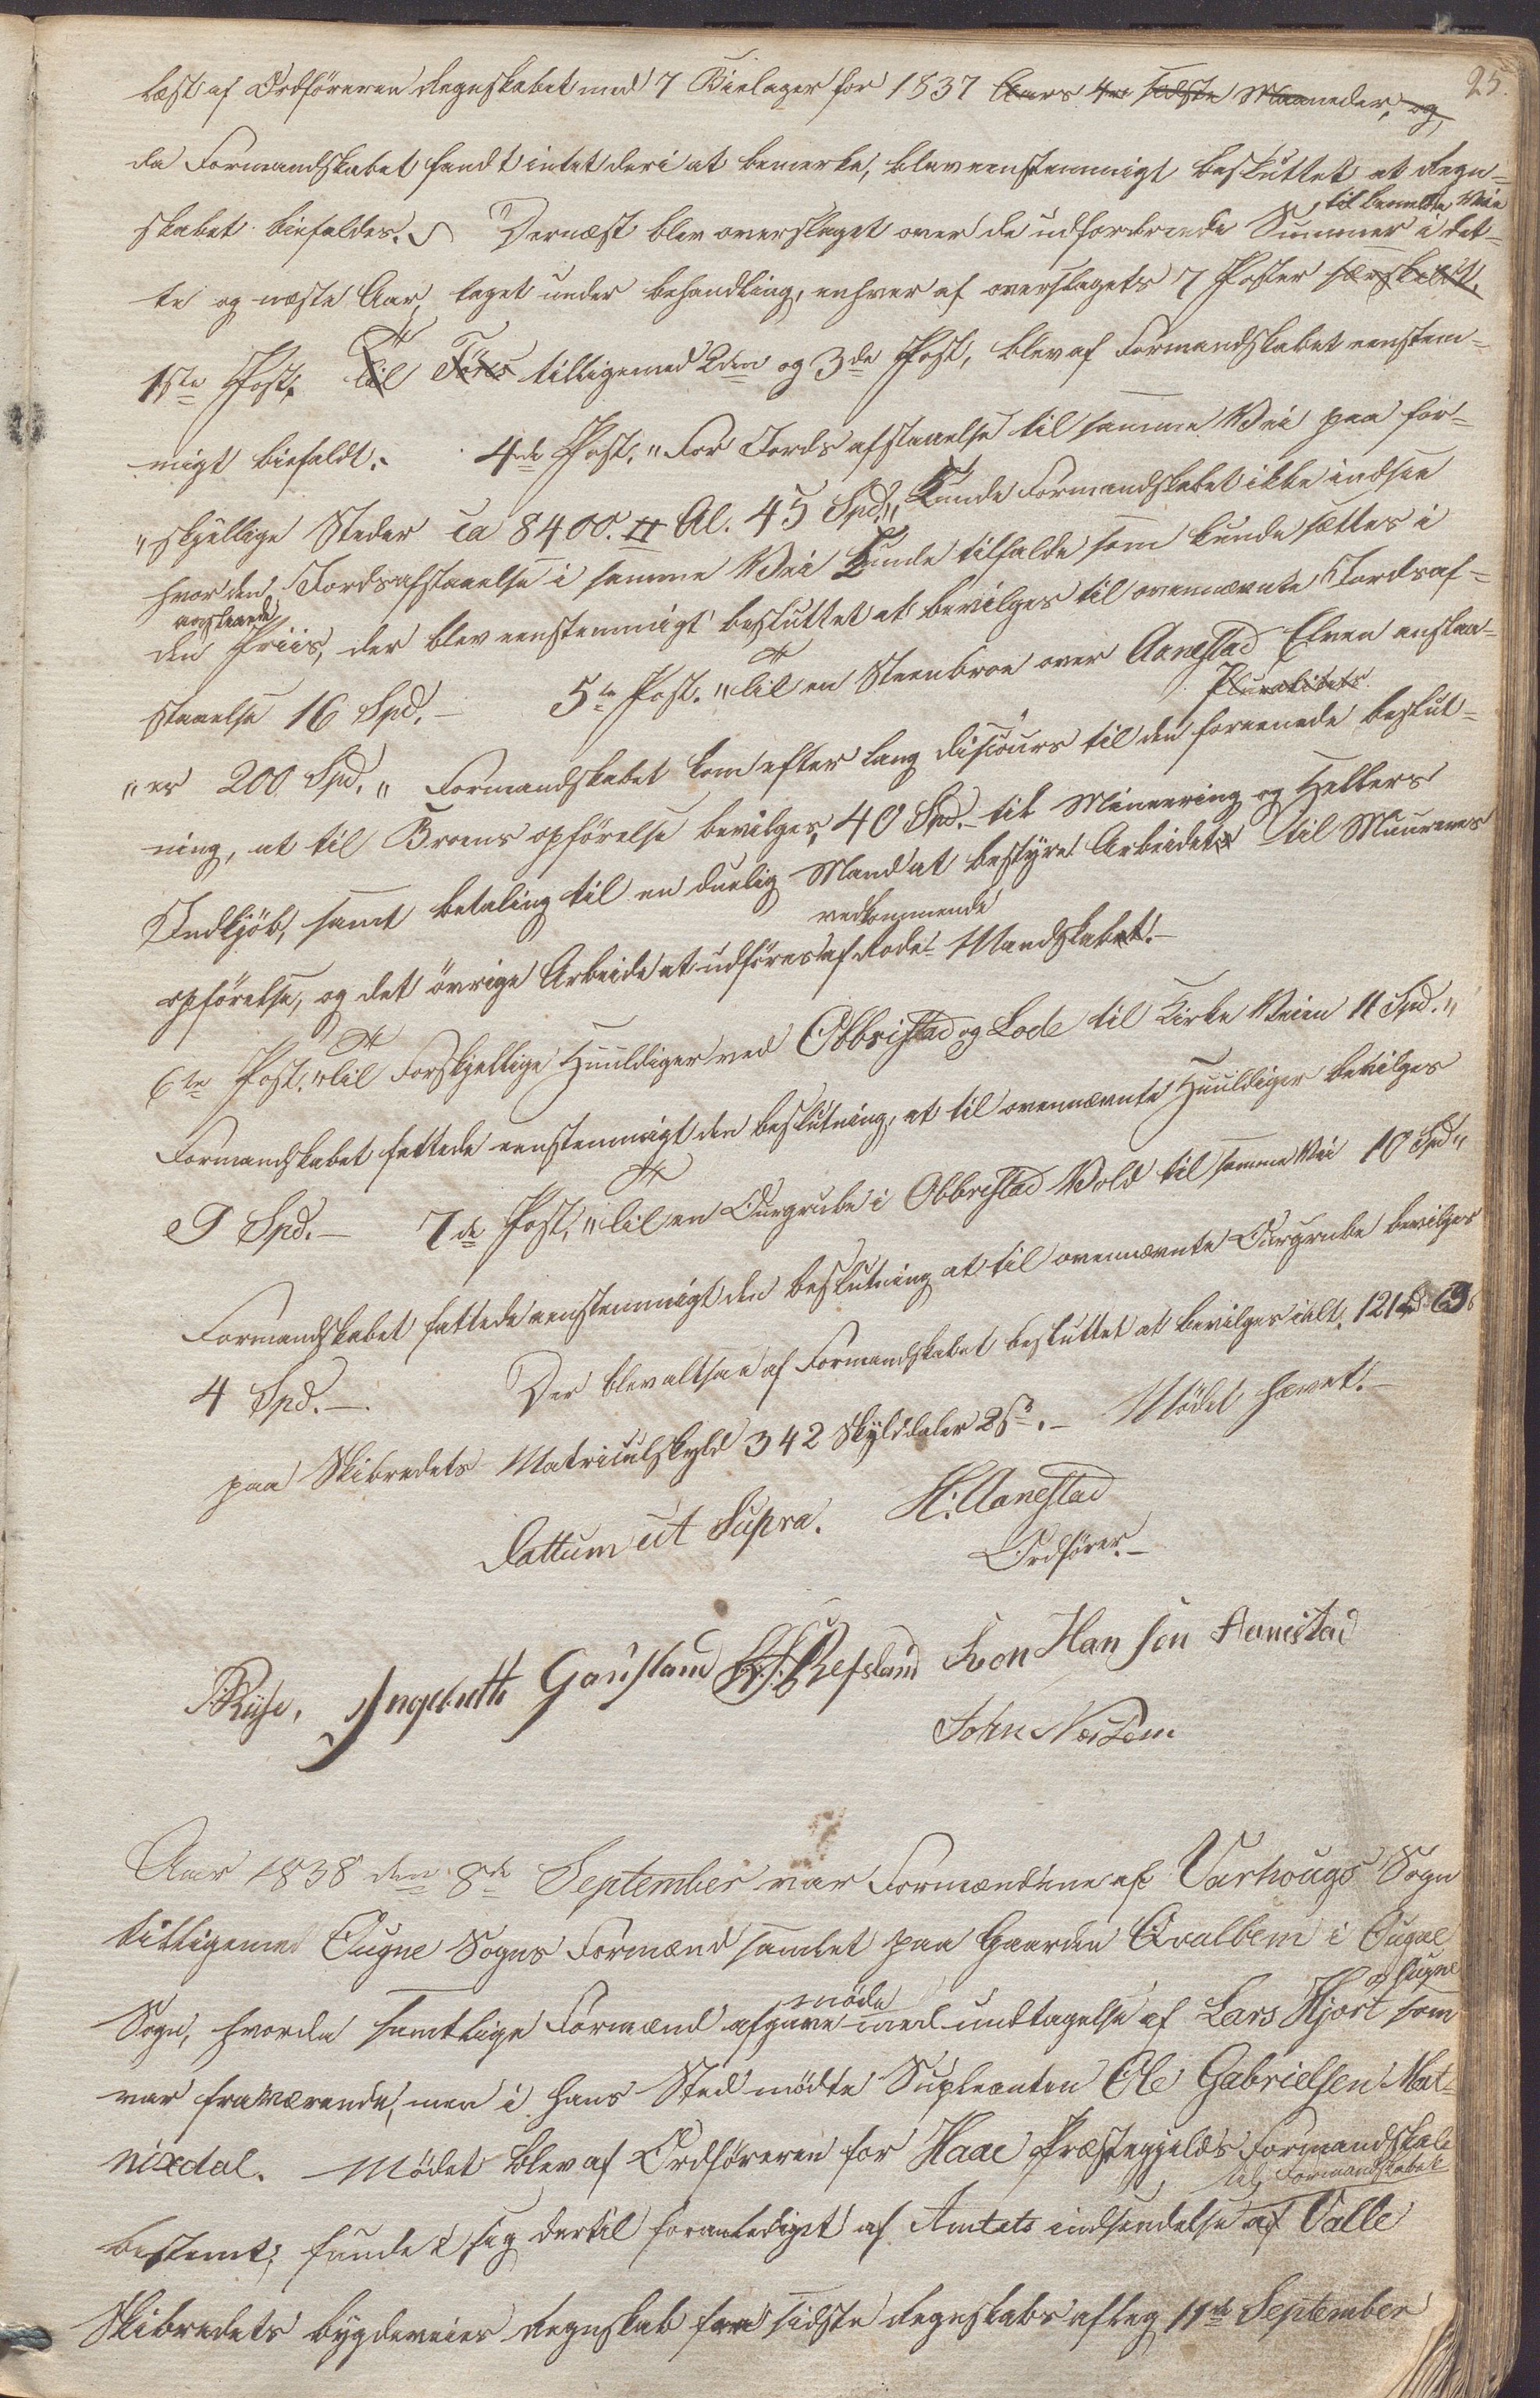 25.
læst af Ordføreren Regnskabet med 7 Bielager for 1837 Aars 4re sidste Maaneder, og
da Formandskabet fandt intet deri at bemerke, blev eenstemmigt besluttet at Regn-
skabet biefaldes. Dernæst blev overslaget over de udfordrende Summer i det-
til bemeldte Veie
te og næste Aar, taget under behandling, enhver af overslagets 7 Poster særskildt.
1ste Post, til Føres tilligemed 2den og 3de Post, blev af Formandskabet eenstem-
migt biefaldt. 4de Post. "For Jords afstaaelse til samme Vei paa for-
"skjællige Steder ca 8400. Al. 45 Spd." Kunde Formandskabet ikke indsee
hvor den Jordsafstaaelse i samme Vei kunde tilfalde som kunde sættes i
den Priis, der blev eenstemmigt besluttet at bevilges til ovennævnte Jordsaf-
staaelse 16 Spd. – 5te Post. "til en Steenbroe over Aanestad Elven anslaa-
Pluralitets
"er 200 Spd." Formandskabet kom efter lang discours til den foreenede beslut-
ning, at til Broens opførelse bevilges, 40 Spd. – til Mineering og Helbers
Indkjøb, samt betaling til en duelig Mand at bestyre Arbeidet til Muurenes
vedkommende
opførelse, og det øvrige Arbeide at udføres af Rode-Mandskabet. –
6te Post. "til Forskjellige Huuldiger ved Obbrestad og Lode til Kirke Veien 11 Spd."
Formandskabet fattede eenstemmigt den beslutning, at til ovennævnte Huuldiger bevilges
9 Spd. – 7de Post, "til en Ourgrube i Obbrestad Vold til samme Vei 10 Spd"
Formandskabet fattede eenstemmigt den beslutning at til ovennævnte Ourgrube bevilges
4 Spd. –. Der blev altsaa af Formandskabet besluttet at bevilges ialt. 121
paa Skibredets Matriculskyld 342 Skylddaler 2 – Mødet hævet. –
Dattum ut Supra. H. Aanestad
Ordfører. –
Riise, Ingebreth Gausland Refsland Sven Hansen Aanestad
John Nærem
Aar 1838 den 8de September var Formændene af Varhougs Sogn
tilligemed Ougne Sogns Formænd samlet paa Gaarden Qvalbem i Ougne
Sogn, hvorda samtlige Formænd afgave møde med undtagelse af Lars Hjort som
af Ougne
var fraværende, men i hans Sted mødte Supleanten Ole Gabrielsen Mat-
nixdal. Mødet blev af Ordføreren for Haae Præstegjelds Formandskab
til Formandskabet
bestemt, fundet sig dertil foranlediget af Amtets indsendelse af Valle
Skibredets bygdeveies Regnskab fra sidste Regnskabs aflæg 11te September